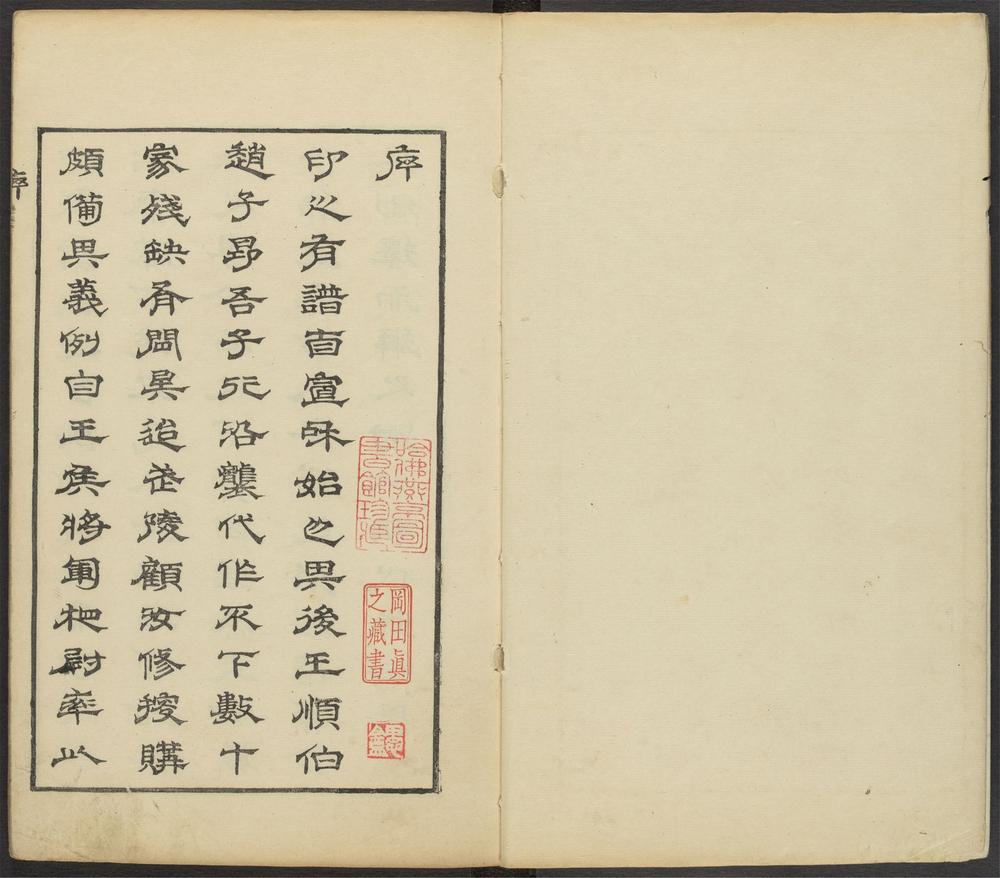 序
印之有譜自宣和始也其後王順伯
趙子昻吾子行沿襲代作不下數十
家殘缺有間矣迨武陵顧汝修搜購
頗備其義例自王侯將軍尉率以
哈佛燕京圖
書館珍藏
岡田眞
之藏書
序